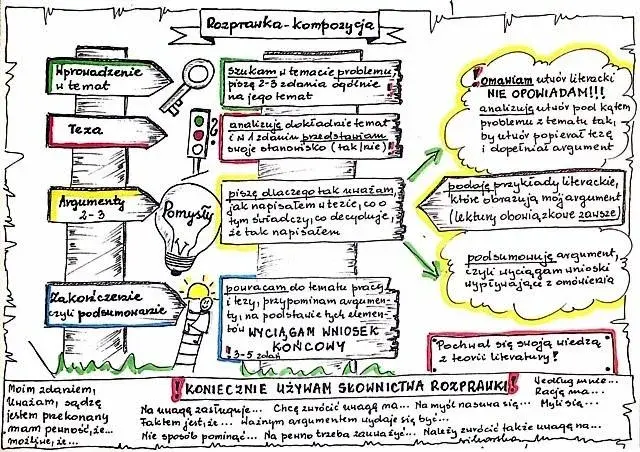 Rozprawka - kompozycja
Wprowadzenie
w temat
szukam w temacie problemu,
piszę 2-3 zdania ogólnie
na jego temat
Teza
analizuję dokładnie temat
i w 1 zdaniu przedstawiam
swoje stanowisko (tak/nie)
Argumenty
2-3
Pomysły
piszę dlaczego tak uważam,
jak napisałem w tezie, co o
tym świadczy, co decyduje,
że tak napisałem
Zakończenie
czyli podsumowanie
powracam do tematu pracy
i tezy, przypominam argumen-
ty; na podstawie tych elemen-
tów
WYCIĄGAM WNIOSEK
KOŃCOWY
! 3-5 zdań
! omawiam utwór literacki
NIE OPOWIADAM!!!
analizuję utwór pod kątem
problemu z tematu tak,
by utwór popierał tezę
i dopełniał argument
podaję przykłady literackie,
które obrazują mój argument
(lektury obowiązkowe zawsze)
podsumowuję argument,
czyli wyciągam wnioski
wypływające z omówienia
Pochwal się swoją wiedzą
z teorii literatury!
! KONIECZNIE UŻYWAM SŁOWNICTWA ROZPRAWKI!
Moim zdaniem,
Uważam, sądzę
jestem przekonany
mam pewność, że...
możliwe, że...
Na uwagę zasługuje... Chcę zwrócić uwagę na... Na myśl nasuwa się...
Faktem jest, że... Ważnym argumentem wydaje się być...
Nie sposób pominąć... Na pewno trzeba zauważyć... Należy zwrócić także uwagę na...
Według mnie...
Rację ma...
Myślę...